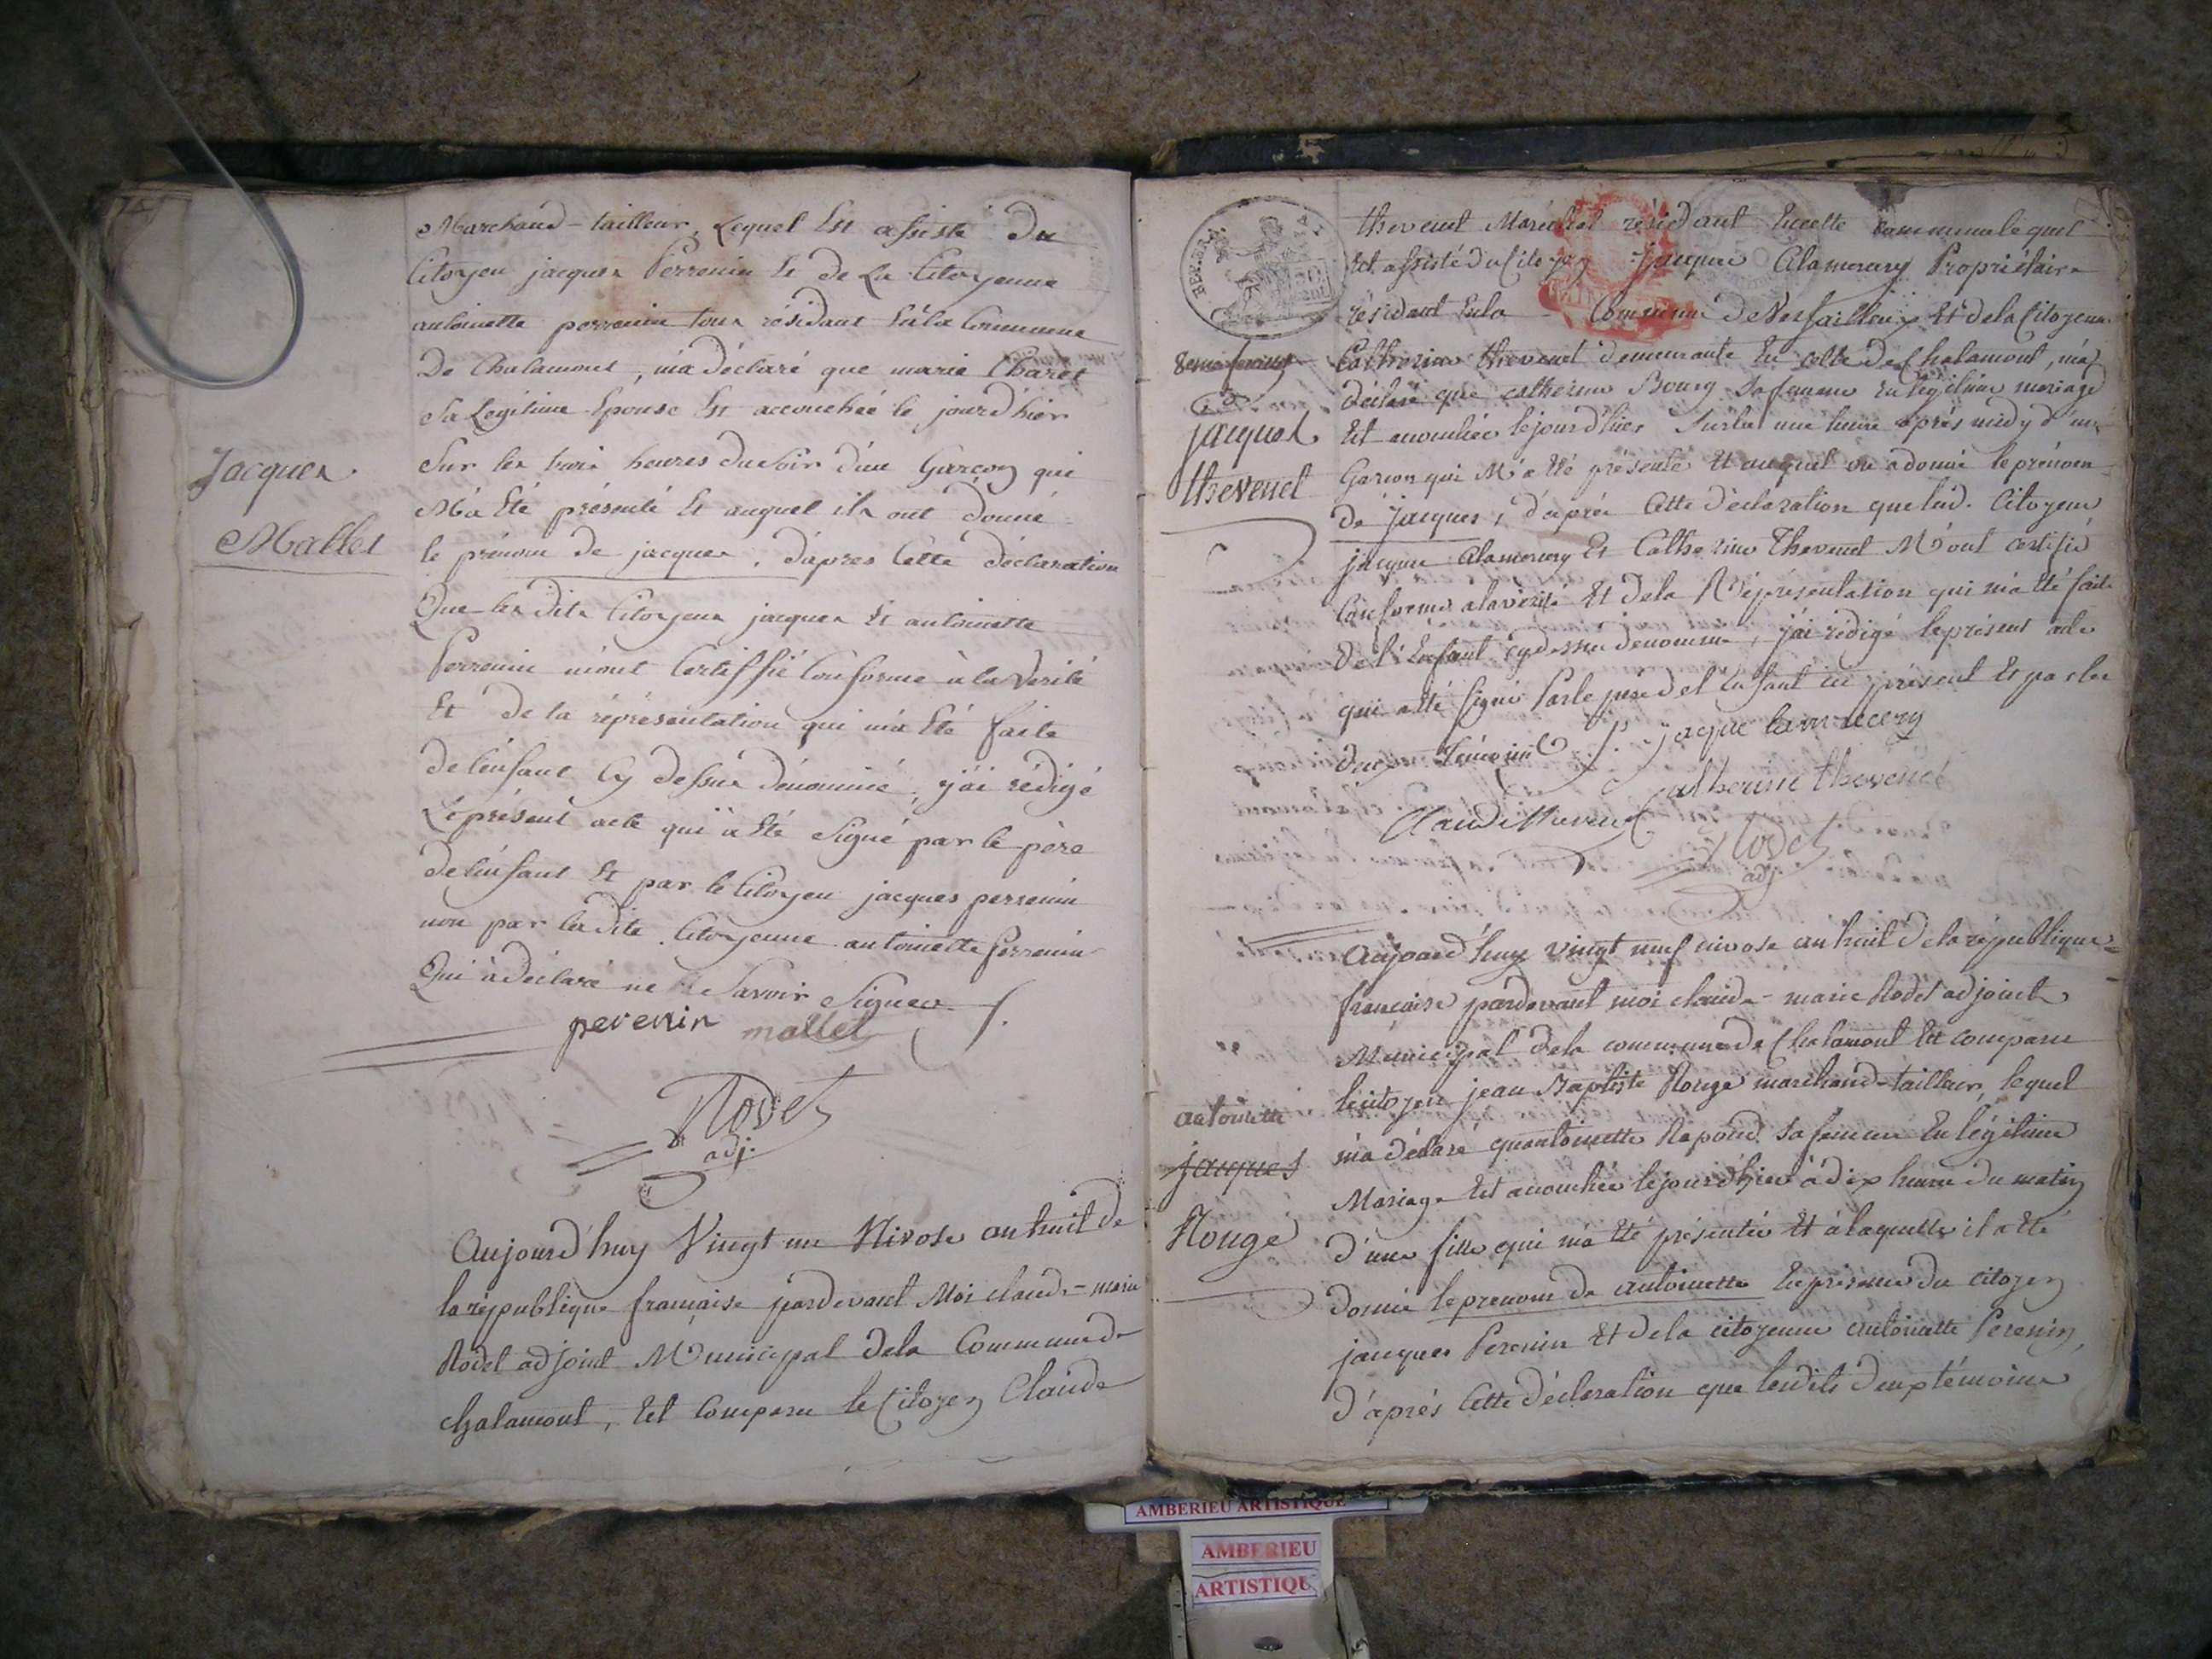 Marchand-tailleur, Lequel Est assisté du
Citoyen jacques Perrenin Et de La Citoyenne
antoinette perrenin tous résidant En la Commune
De Chalamont, m'a déclaré que marie Charet
Sa Legitime Epouse Est accouchée le jourd'hier
Sur les trois heures du soir d'un Garçon qui
M'a Eté présenté Et auquel ils ont donné
le prénom de jacques, d'apres Cette déclaration
Que les dits Citoyens jacques Et antoinette
Perrenin m'ont Certiffié Conforme à la Verité
Et De la réprésentation qui m'a Eté faite
de l'enfant Cy dessus dénommé, j'ai rédigé
Le présent acte qui a Eté Signé par le père
de l'enfant Et par le Citoyen jacques perrenin
non par la dite Citoyenne antoinette perrenin
Qui à déclaré ne Savoir Signer
perenin mallet
Rodet
adj.
Jacques
Mallet
Aujourd'huy Vingt un Nivose an huit de
la république française pardevant Moi claude-marie
Rodet adjoint Municipal dela Commune de
chalamont, Est Comparu le Citoyen Claude
thevenet Maréchal résidant En cette Commune lequel
Est assisté du Citoyen jacques Alamercery Propriétaire
résidant En la Commune de Versailleux Et de la Citoyenne
Catherine thevenet demeurante En celle de Chalamont, m'a
déclaré que catherine Bourg Sa femme En légitime mariage
Est accouchée le jourd'hier Sur les une heure après midy d'un
Garçon qui M'a Eté présenté Et auquel on a donné le prénom
de jacques, d'après Cette déclaration que lesd. Citoyens
jacques Alamercery Et Catherine Thevenet M'ont certifié
Conforme a la vérité Et de la Réprésentation qui m'a Eté faite
de l'Enfant cy dessus denommé, j'ai rédigé le présent acte
qui a Eté Signé Par le père de l'Enfant ici présent Et par les
deux Témoins jaque lamercery
Catherine thevenet
Claude thevenet
Rodet
adj
jacques
thevenet
Aujourd'huy vingt neuf nivose an huit de la république
française pardevant moi claude-marie Rodet adjoint
Municipal de la commune de Chalamont Est comparu
le citoyen jean Baptiste Rouge marchand-tailleur, lequel
m'a déclaré qu'antoinette Sa femme En légitime
Mariage Est accouchée le jourd'hier à dix heures du matin
d'une fille qui m'a Eté présentée Et à laquelle il a Eté
donné le prenom de antoinette En présence du citoyen
jacques Perenin Et de la citoyenne antoinette Perenin,
d'après Cette déclaration que lesdits deux témoins
antoinette
jacques
Rouge
AMBERIEU ARTISTIQUE
AMBERIEU
ARTISTIQU